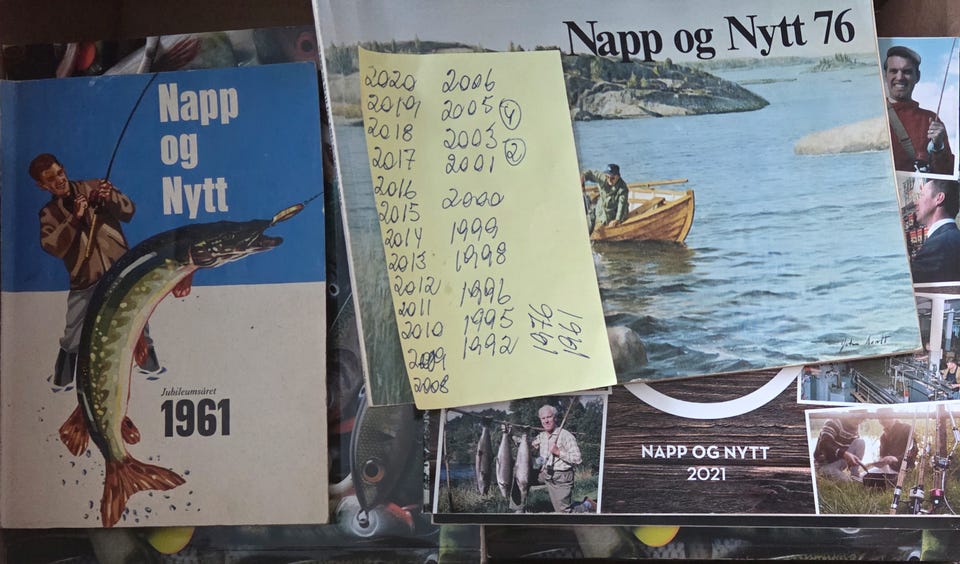 Napp
og
Nytt
Jubileumsåret
1961
Napp og Nytt 76
2020
2019
2018
2017
2016
2015
2014
2013
2012
2011
2010
2009
2008
2006
2005 4
2003
2001 2
2000
1999
1998
1996
1995
1992
1976
1961
NAPP OG NYTT
2021